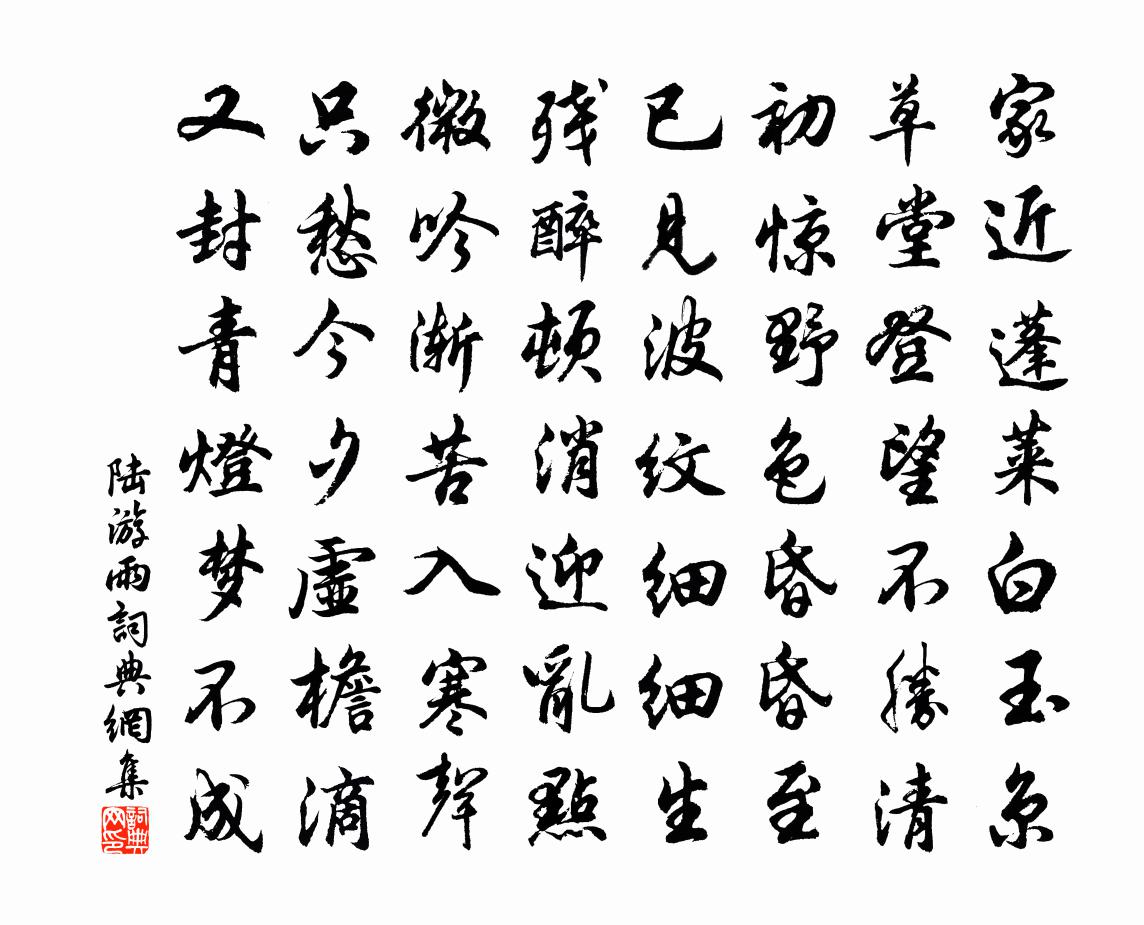 家近蓬莱白玉京
草堂登望不勝清
初惊野色昏昏至
已見波纹细细生
残醉顿消迎亂點
微吟渐苦入寒聲
只愁今夕虚檐滴
又封青燈梦不成
陆游雨詞典網集
詞典网印